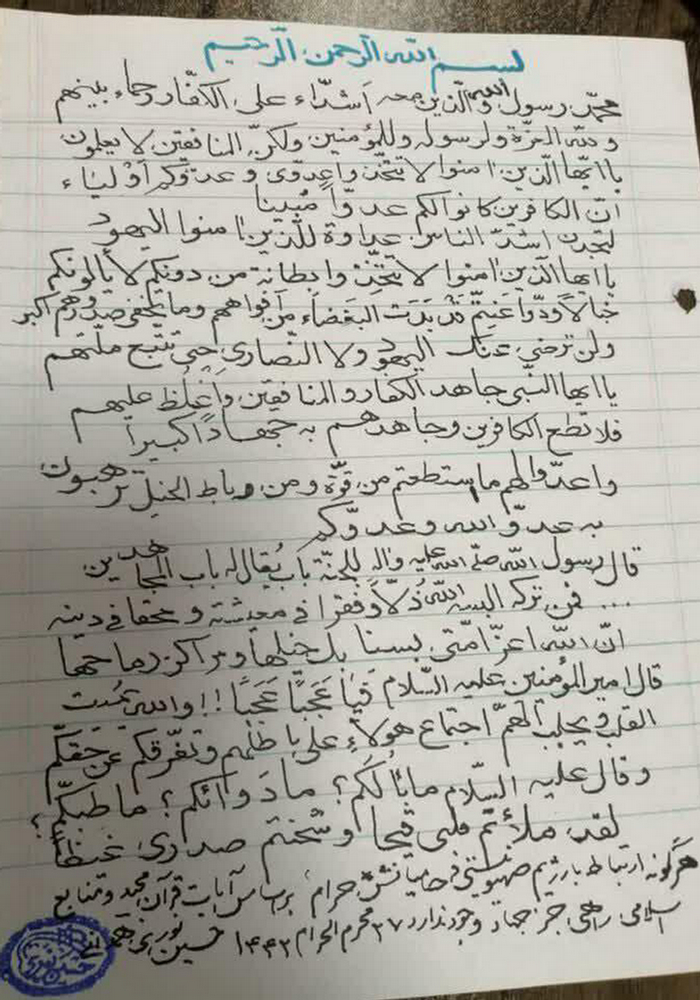 بسم الله الرحمن الرحیم
محمّد رسول الله والّذین معه اَشدّاء علی الکفّار رحماء بینهم
و للّه العزّة ولرسوله وللمؤمنین ولکنّ المنافقین لا یعلمون
یا ایّها الّذین امنوا لا تتّخذوا عدوّی و عدوّکم اَوْلیاء
انّ الکافرین کانوا لکم عدوّاً مُبینا
لتجدن اشدّ الناس عداوة للّذین امنوا الیهود
یا ایها الذین امنوا لا تتّخذوا بطانة من دونکم لا یألونکم
خبالاً ودّوا عَنِتّم قد بَدَت البغضاء من اَفواههم وما تخفی صدورهم اکبر
ولن ترضی عنک الیهود ولا النّصاری حتی تتّبع ملّتهم
یا ایها النّبی جاهد الکفار و المنافقین وَاغلُظ علیهم
فلا تطع الکافرین وجاهدهم به جهاداً کبیراً
واعدّوا لهم ما ستطعتم من قوّة ومن رباط الخیل ترهبون
به عدوّ الله وعدوّکم
قال رسول اللّه صلّی اللّه علیه واله للجنّة بابٌ یُقال له باب المجاهدین
... فمن ترکه البسه اللّه ذُلّاً وفقرا فی معیشته و محقا فی دینه
انّ اللّه اعزّ امّتی بسنابک خیلها ومراکز رماحها
قال امیرالمؤمنین علیه السّلام فیا عَجَبًا عَجَبًا !! واللهِ یُمیت
القلب ویجلب الهمّ اجتماع هولاءِ علی باطلهم وتفرّقکم عن حَقکّم
وقال علیه السّلام مابالُکُم؟ ما دَوائکم؟ ما طبکّم؟
لقد ملأتم قلبی قیحا وشحنتم صدری غیظاً
هرگونه ارتباط با رژیم صهیونیستی و حامیانش حرام، براساس آیات قرآن مجید و منابع
اسلامی راهی جز جهاد وجود ندارد ۲۷ محرم الحرام ۱۴۴۲ حسین نوری همدانی